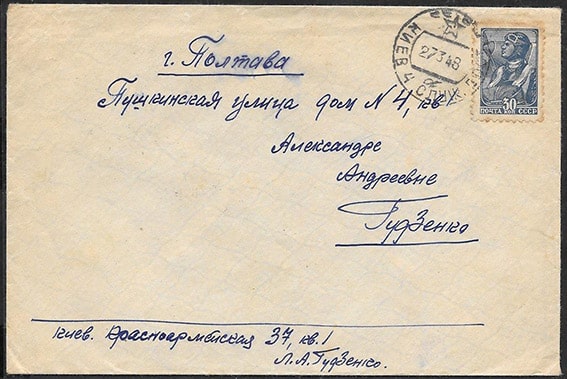 г. Полтава
Пушкинская улица дом N 4, кв
Александре
Андреевне
Гудзенко
Киев. Красноармейская 37, кв. 1
Л.А. Гудзенко.
КИЕВ 4
27 3 48
30
ПОЧТА КОП СССР